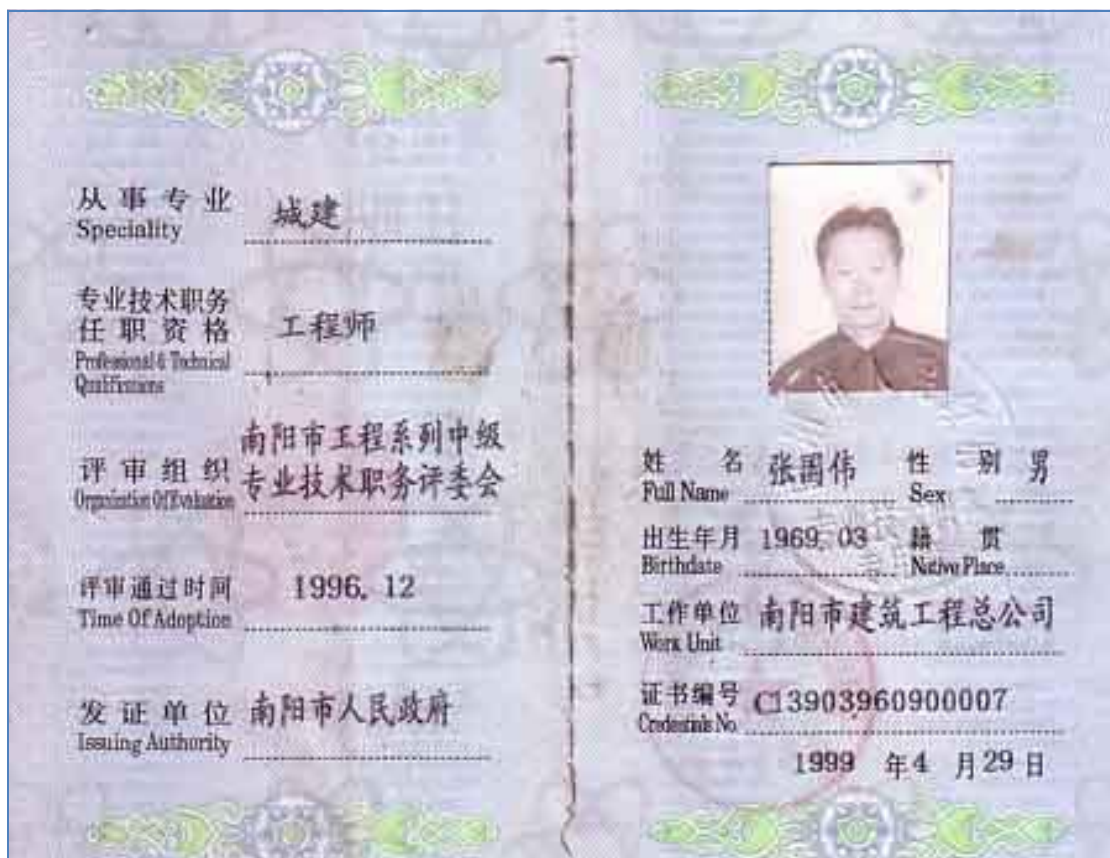 从事专业 城建
Speciality
专业技术职务
任职资格 工程师
Professional & Technical
Qualifications
南阳市工程系列中级
评审组织 专业技术职务评委会
Organization Of Evaluation
评审通过时间 1996.12
Time Of Adoption
发证单位 南阳市人民政府
Issuing Authority
姓名 张国伟 性别 男
Full Name Sex
出生年月 1969.03 籍贯
Birthdate Native Place
工作单位 南阳市建筑工程总公司
Work Unit
证书编号 C13903960900007
Credentials No.
1999 年4 月29日